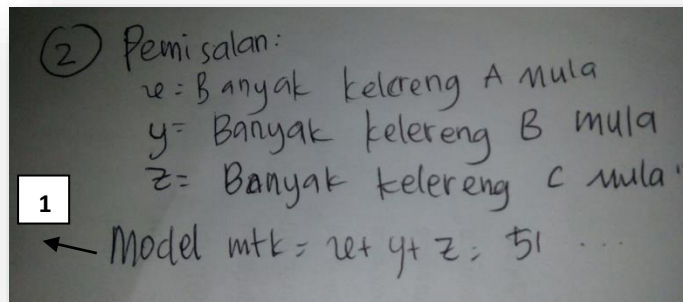 2 Pemisalan:
x = Banyak kelereng A mula
y = Banyak kelereng B mula
z = Banyak kelereng C mula
1
Model mtk = x + y + z = 51 ...